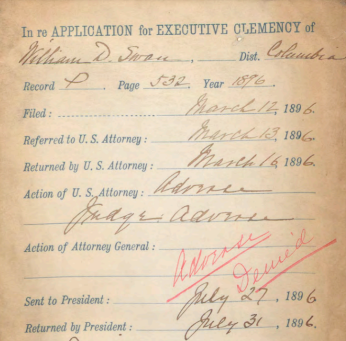 In re APPLICATION for EXECUTIVE CLEMENCY of
William D. Swan, Dist. Columbia
Record P. Page 532, Year 1896.
Filed: March 12, 1896
Referred to U.S. Attorney: March 13, 1896.
Returned by U.S. Attorney: March 16, 1896
Action of U.S. Attorney: Adverse
Judge Adverse
Action of Attorney General:
Adverse Denied
Sent to President: July 27, 1896
Returned by President: July 31, 1896.